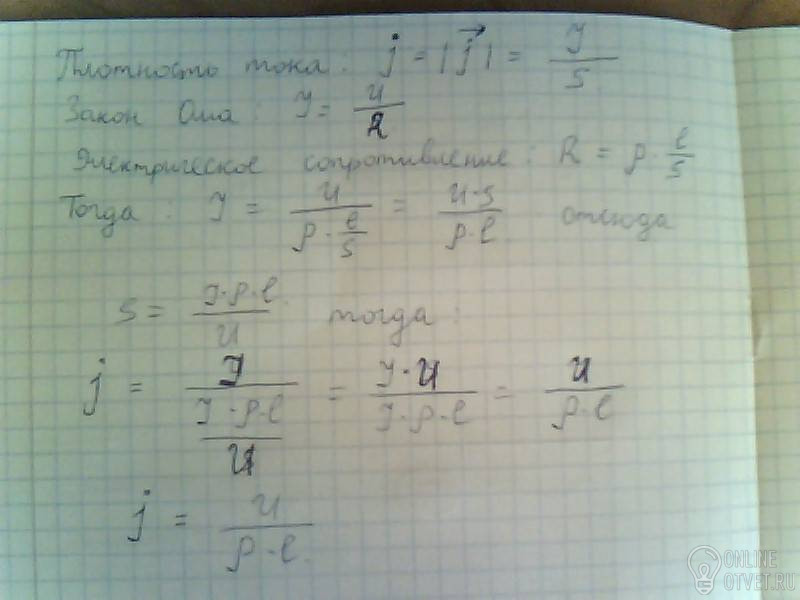 Плотность тока: j = |j⃗| = J/S
Закон Ома: J = U/R
Электрическое сопротивление: R = ρ · l/S
Тогда: J = U/(ρ · l/S) = U·S/(ρ·l) отсюда
S = J·ρ·l/U тогда:
j = J/(J·ρ·l/U) = J·U/(J·ρ·l) = U/(ρ·l)
j = U/(ρ·l)
ONLINE
OTVET.RU